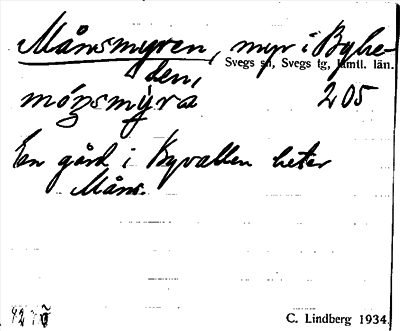 Månsmyren, myr i Byhe-
den,
Svegs sn, Svegs tg, Jämtl. län.
mó̜nsmýra 205
En gård i Byvallen heter
Måns.
C. Lindberg 1934.